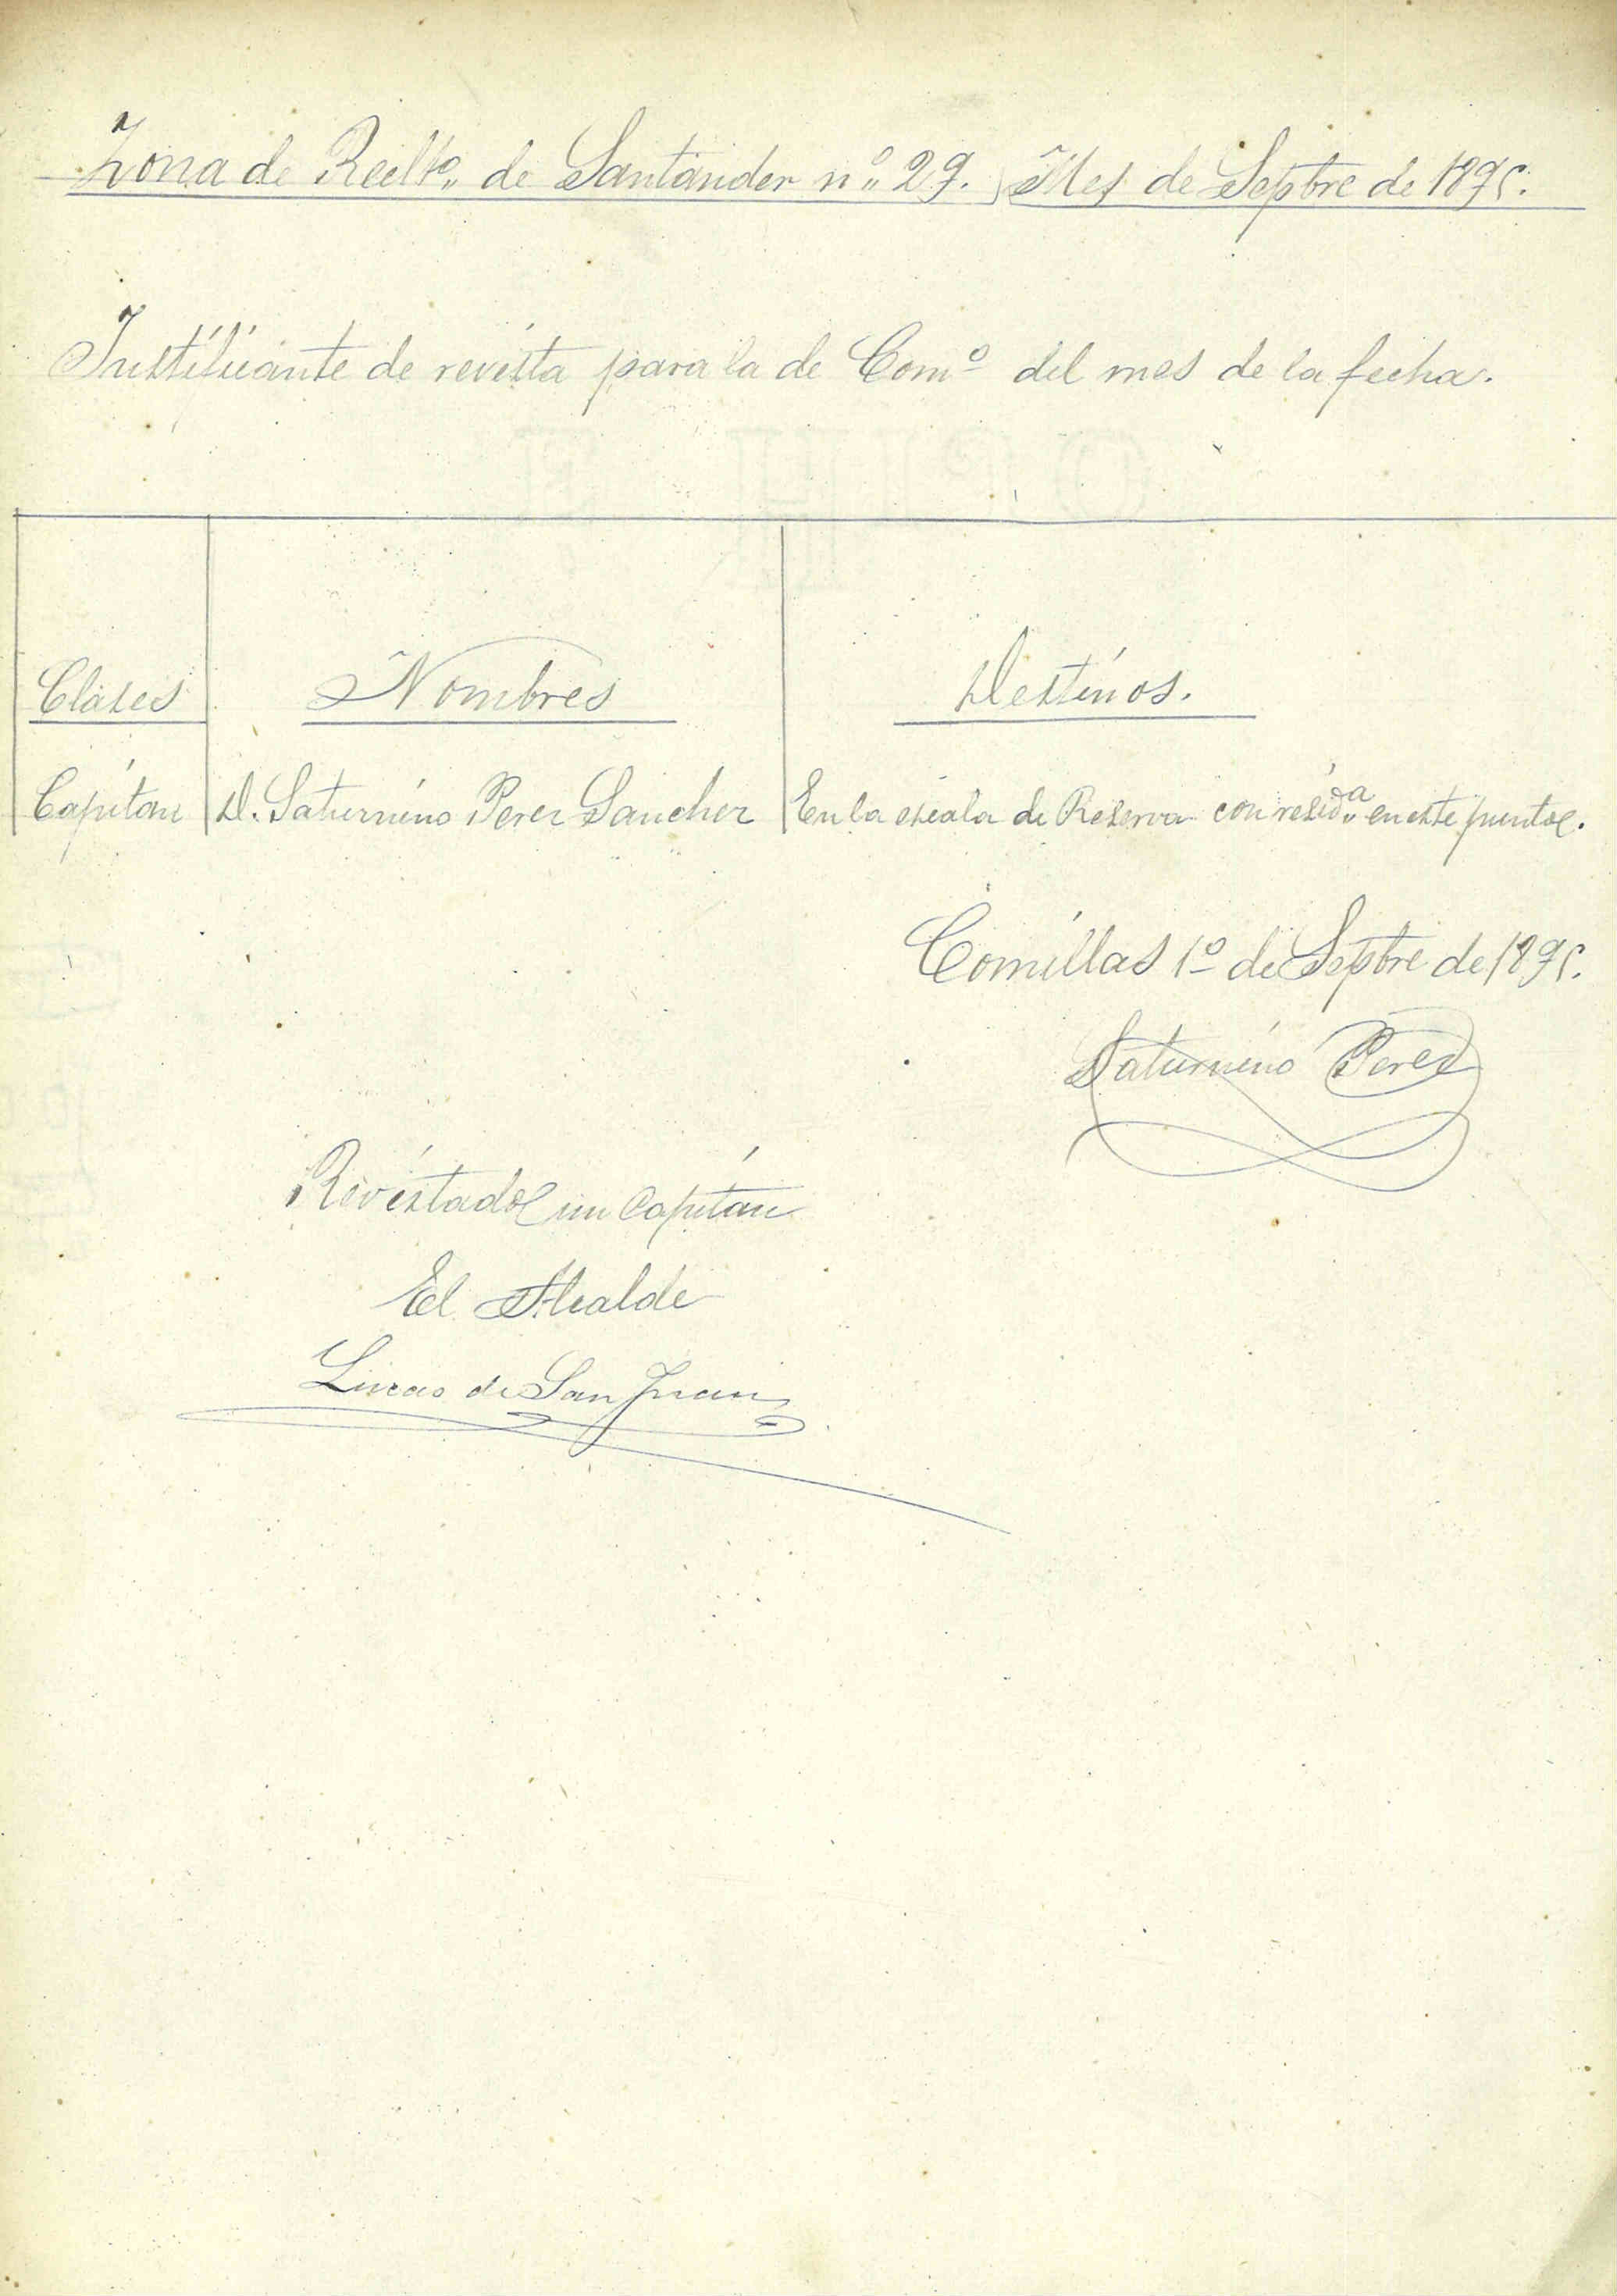 Zona de Reclto. de Santander nº 29. Mes de Septbre de 1895.
Justificante de revista para la de Comº del mes de la fecha.
Clases Nombres Destinos.
Capitan D. Saturnino Perez Sanchez En la escala de Reserva con residª en este punto.
Comillas 1º de Septbre de 1895.
Saturnino Perez
Revistado un Capitan
El Alcalde
Lucas de San Juan